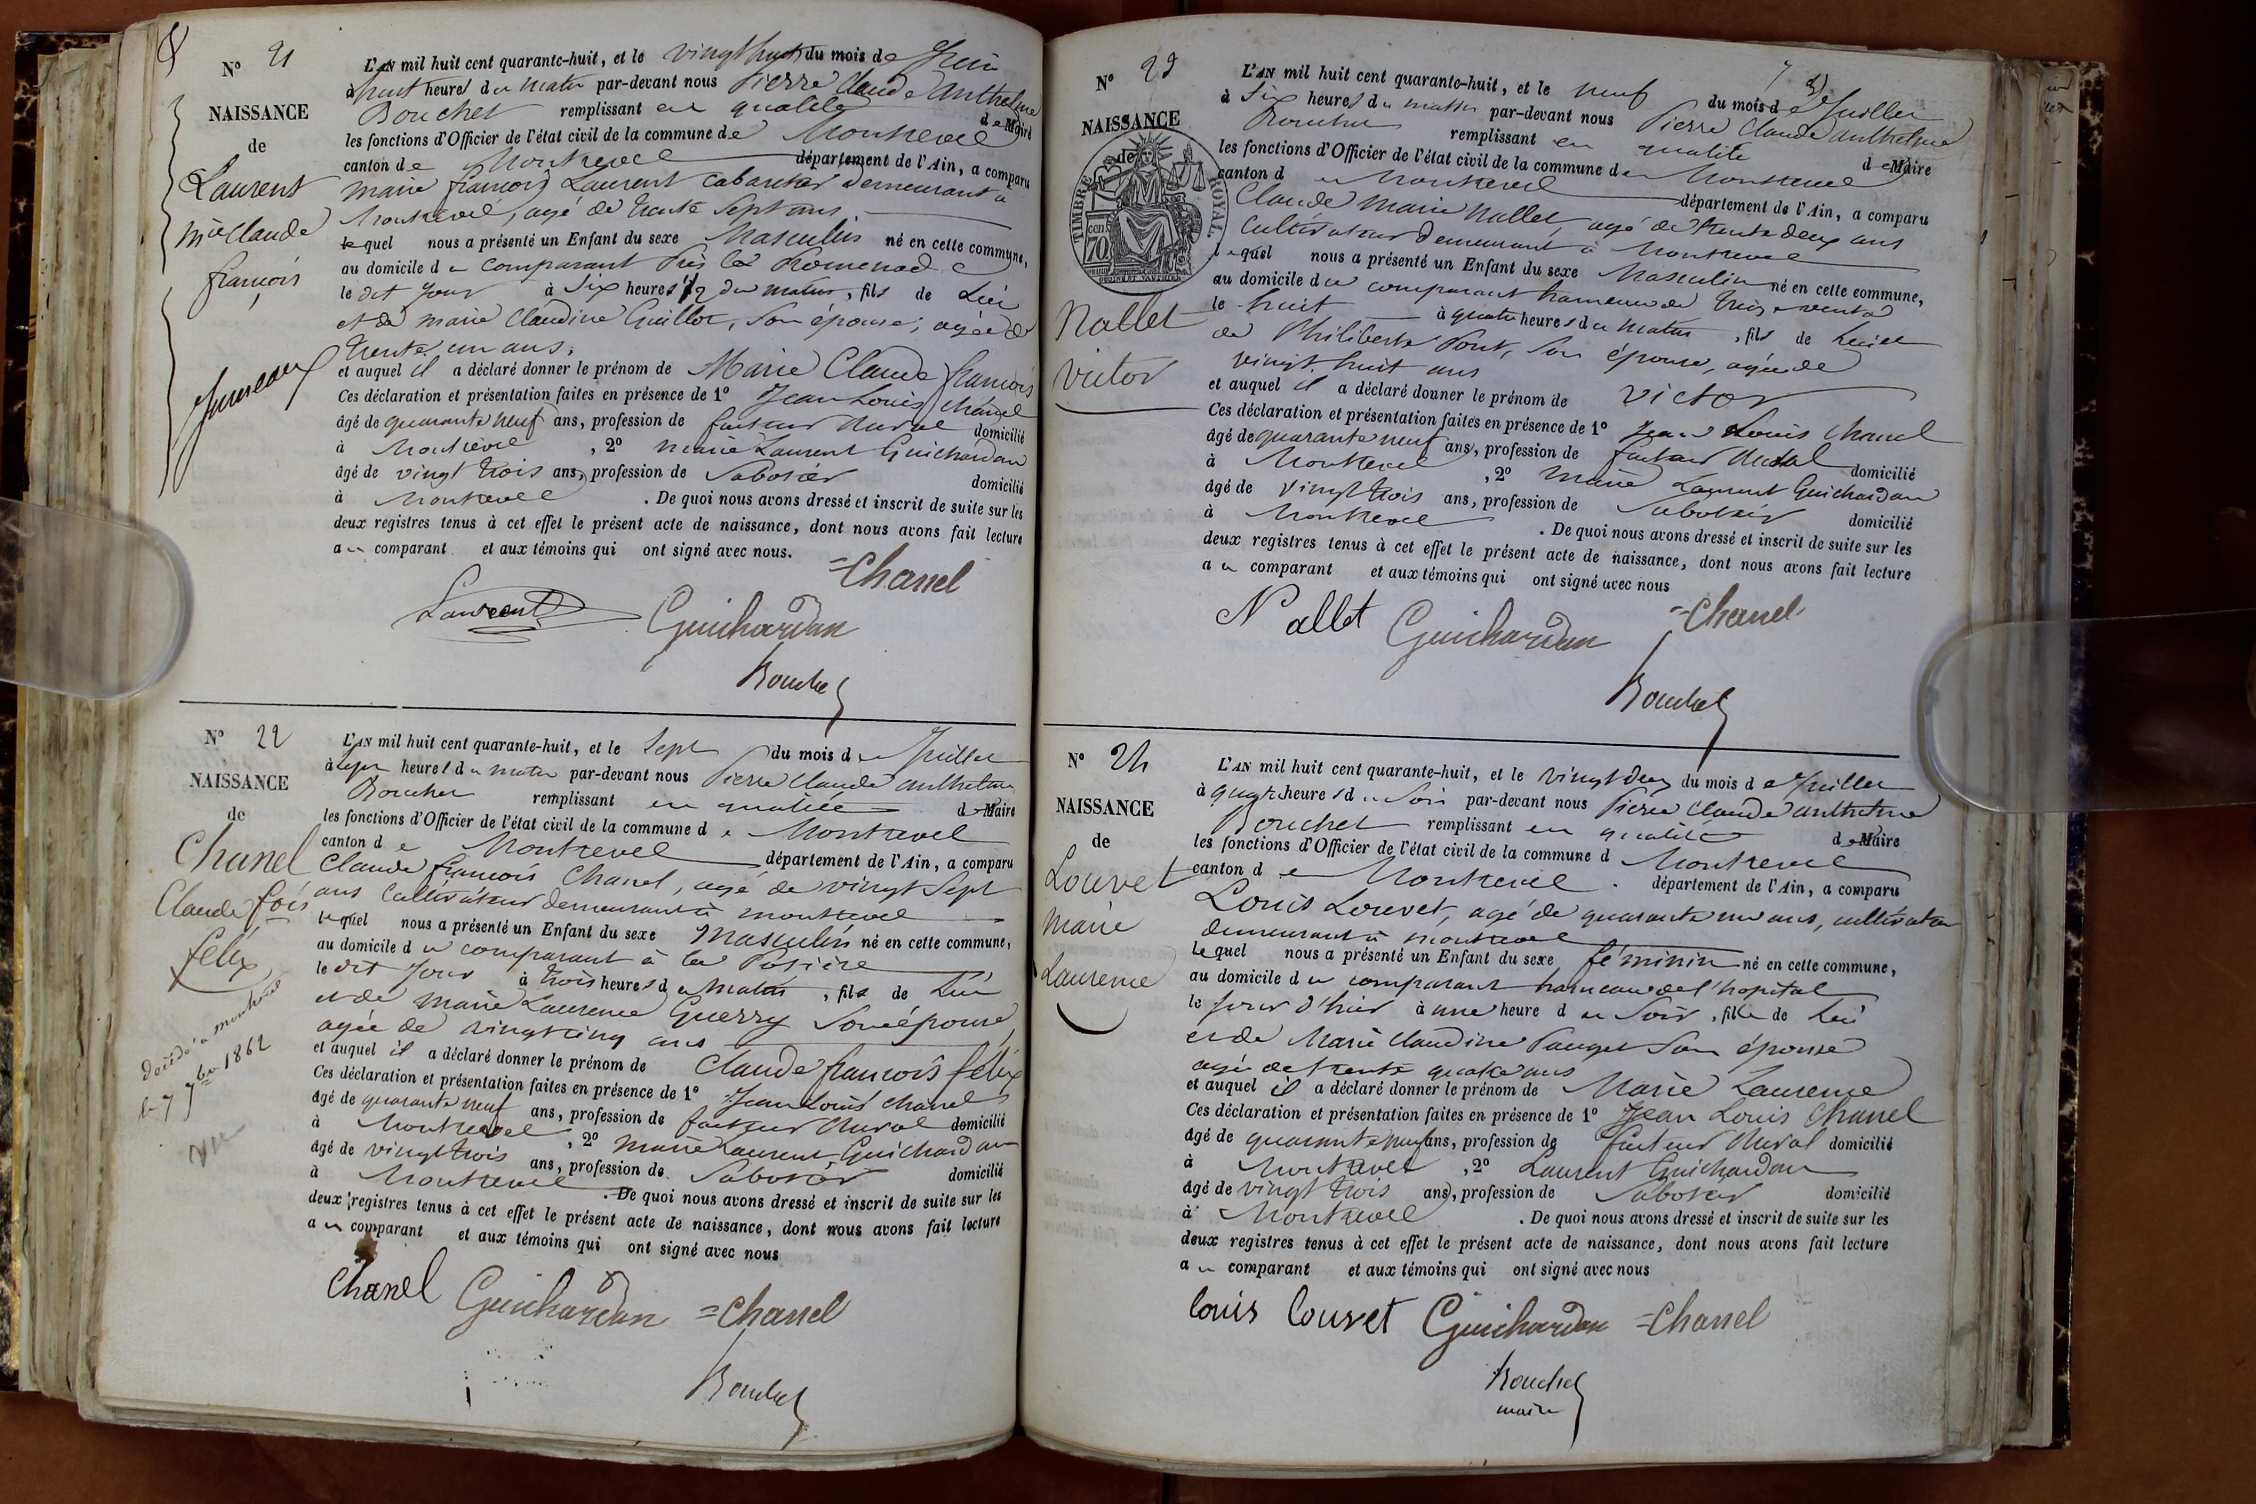 N° 21
NAISSANCE
de
Laurent
Mie Claude
françois
Jumeaux
L'AN mil huit cent quarante-huit, et le vingt huit du mois de Juin
à huit heures du matin par-devant nous Pierre Claude Anthelme
Bouchet remplissant en qualité de Maire
les fonctions d'Officier de l'état civil de la commune de Montrevel
canton de Montrevel département de l'Ain, a comparu
marie françois Laurent cabaretier demeurant à
Montrevel, agé de trente sept ans
lequel nous a présenté un Enfant du sexe Masculin né en cette commune,
au domicile du comparant Près la Promenade
le dit jour à Six heures 1/2 du matin, fils de Lui
et de marie Claudine Guillot, son épouse, agée de
trente un ans,
et auquel il a déclaré donner le prénom de Marie Claude françois
Ces déclaration et présentation faites en présence de 1° Jean Louis Chanel
âgé de quarante neuf ans, profession de facteur Rural domicilié
à Montrevel, 2° marie Laurent Guichardan
âgé de vingt trois ans, profession de Sabotier domicilié
à Montrevel. De quoi nous avons dressé et inscrit de suite sur les
deux registres tenus à cet effet le présent acte de naissance, dont nous avons fait lecture
au comparant et aux témoins qui ont signé avec nous.
=Chanel
Laurent Guichardan
Bouchet
N° 22
NAISSANCE
de
Chanel
Claude fois
félix
décédé à
le 7 7bre 1862
vu
L'AN mil huit cent quarante-huit, et le Sept du mois de Juillet
à sept heures du matin par-devant nous Pierre Claude anthelme
Bouchet remplissant en qualité de Maire
les fonctions d'Officier de l'état civil de la commune de Montrevel
canton de Montrevel département de l'Ain, a comparu
Claude françois Chanel, agé de vingt Sept
ans Cultivateur demeurant à montrevel
lequel nous a présenté un Enfant du sexe Masculin né en cette commune,
au domicile du comparant à la
le dit jour à trois heures du matin, fils de Lui
et de marie Laurence Guerry Son épouse,
agée de vingt cinq ans
et auquel il a déclaré donner le prénom de Claude françois félix
Ces déclaration et présentation faites en présence de 1° Jean Louis Chanel
âgé de quarante neuf ans, profession de facteur Rural domicilié
à Montrevel, 2° marie Laurent Guichardan
âgé de vingt trois ans, profession de Sabotier domicilié
à Montrevel. De quoi nous avons dressé et inscrit de suite sur les
deux registres tenus à cet effet le présent acte de naissance, dont nous avons fait lecture
au comparant et aux témoins qui ont signé avec nous
Chanel Guichardan =Chanel
Bouchet
N° 23
NAISSANCE
de
TIMBRE ROYAL
70 cen
Nallet
victor
L'AN mil huit cent quarante-huit, et le neuf du mois de Juillet
à Six heures du matin par-devant nous Pierre Claude anthelme
Bouchet remplissant en qualité de Maire
les fonctions d'Officier de l'état civil de la commune de Montrevel
canton de Montrevel département de l'Ain, a comparu
Claude Marie Nallet, agé de trente deux ans
Cultivateur demeurant à Montrevel
lequel nous a présenté un Enfant du sexe Masculin né en cette commune,
au domicile du comparant hameau de
le huit à quatre heures du matin, fils de Lui et
de Philiberte Pont, Son épouse, agée de
vingt huit ans
et auquel il a déclaré donner le prénom de Victor
Ces déclaration et présentation faites en présence de 1° Jean Louis Chanel
âgé de quarante neuf ans, profession de facteur Rural domicilié
à Montrevel, 2° Marie Laurent Guichardan
âgé de vingt trois ans, profession de Sabotier domicilié
à Montrevel. De quoi nous avons dressé et inscrit de suite sur les
deux registres tenus à cet effet le présent acte de naissance, dont nous avons fait lecture
au comparant et aux témoins qui ont signé avec nous
Nallet Guichardan =Chanel
Bouchet
N° 24
NAISSANCE
de
Louvet
Marie
Laurence
L'AN mil huit cent quarante-huit, et le vingt deux du mois de Juillet
à quatre heures du Soir par-devant nous Pierre Claude anthelme
Bouchet remplissant en qualité de Maire
les fonctions d'Officier de l'état civil de la commune d Montrevel
canton de Montrevel. département de l'Ain, a comparu
Louis Louvet, agé de quarante un ans, cultivateur
demeurant à montrevel
lequel nous a présenté un Enfant du sexe féminin né en cette commune,
au domicile du comparant hameau de l'hopital
le jour d'hier à une heure du Soir, fille de Lui
et de Marie Claudine Pauget Son épouse
agée de trente quatre ans
et auquel il a déclaré donner le prénom de Marie Laurence
Ces déclaration et présentation faites en présence de 1° Jean Louis Chanel
âgé de quarante neuf ans, profession de facteur Rural domicilié
à Montrevel, 2° Laurent Guichardan
âgé de vingt trois ans, profession de Sabotier domicilié
à Montrevel. De quoi nous avons dressé et inscrit de suite sur les
deux registres tenus à cet effet le présent acte de naissance, dont nous avons fait lecture
au comparant et aux témoins qui ont signé avec nous
louis louvet Guichardan =Chanel
Bouchet
maire